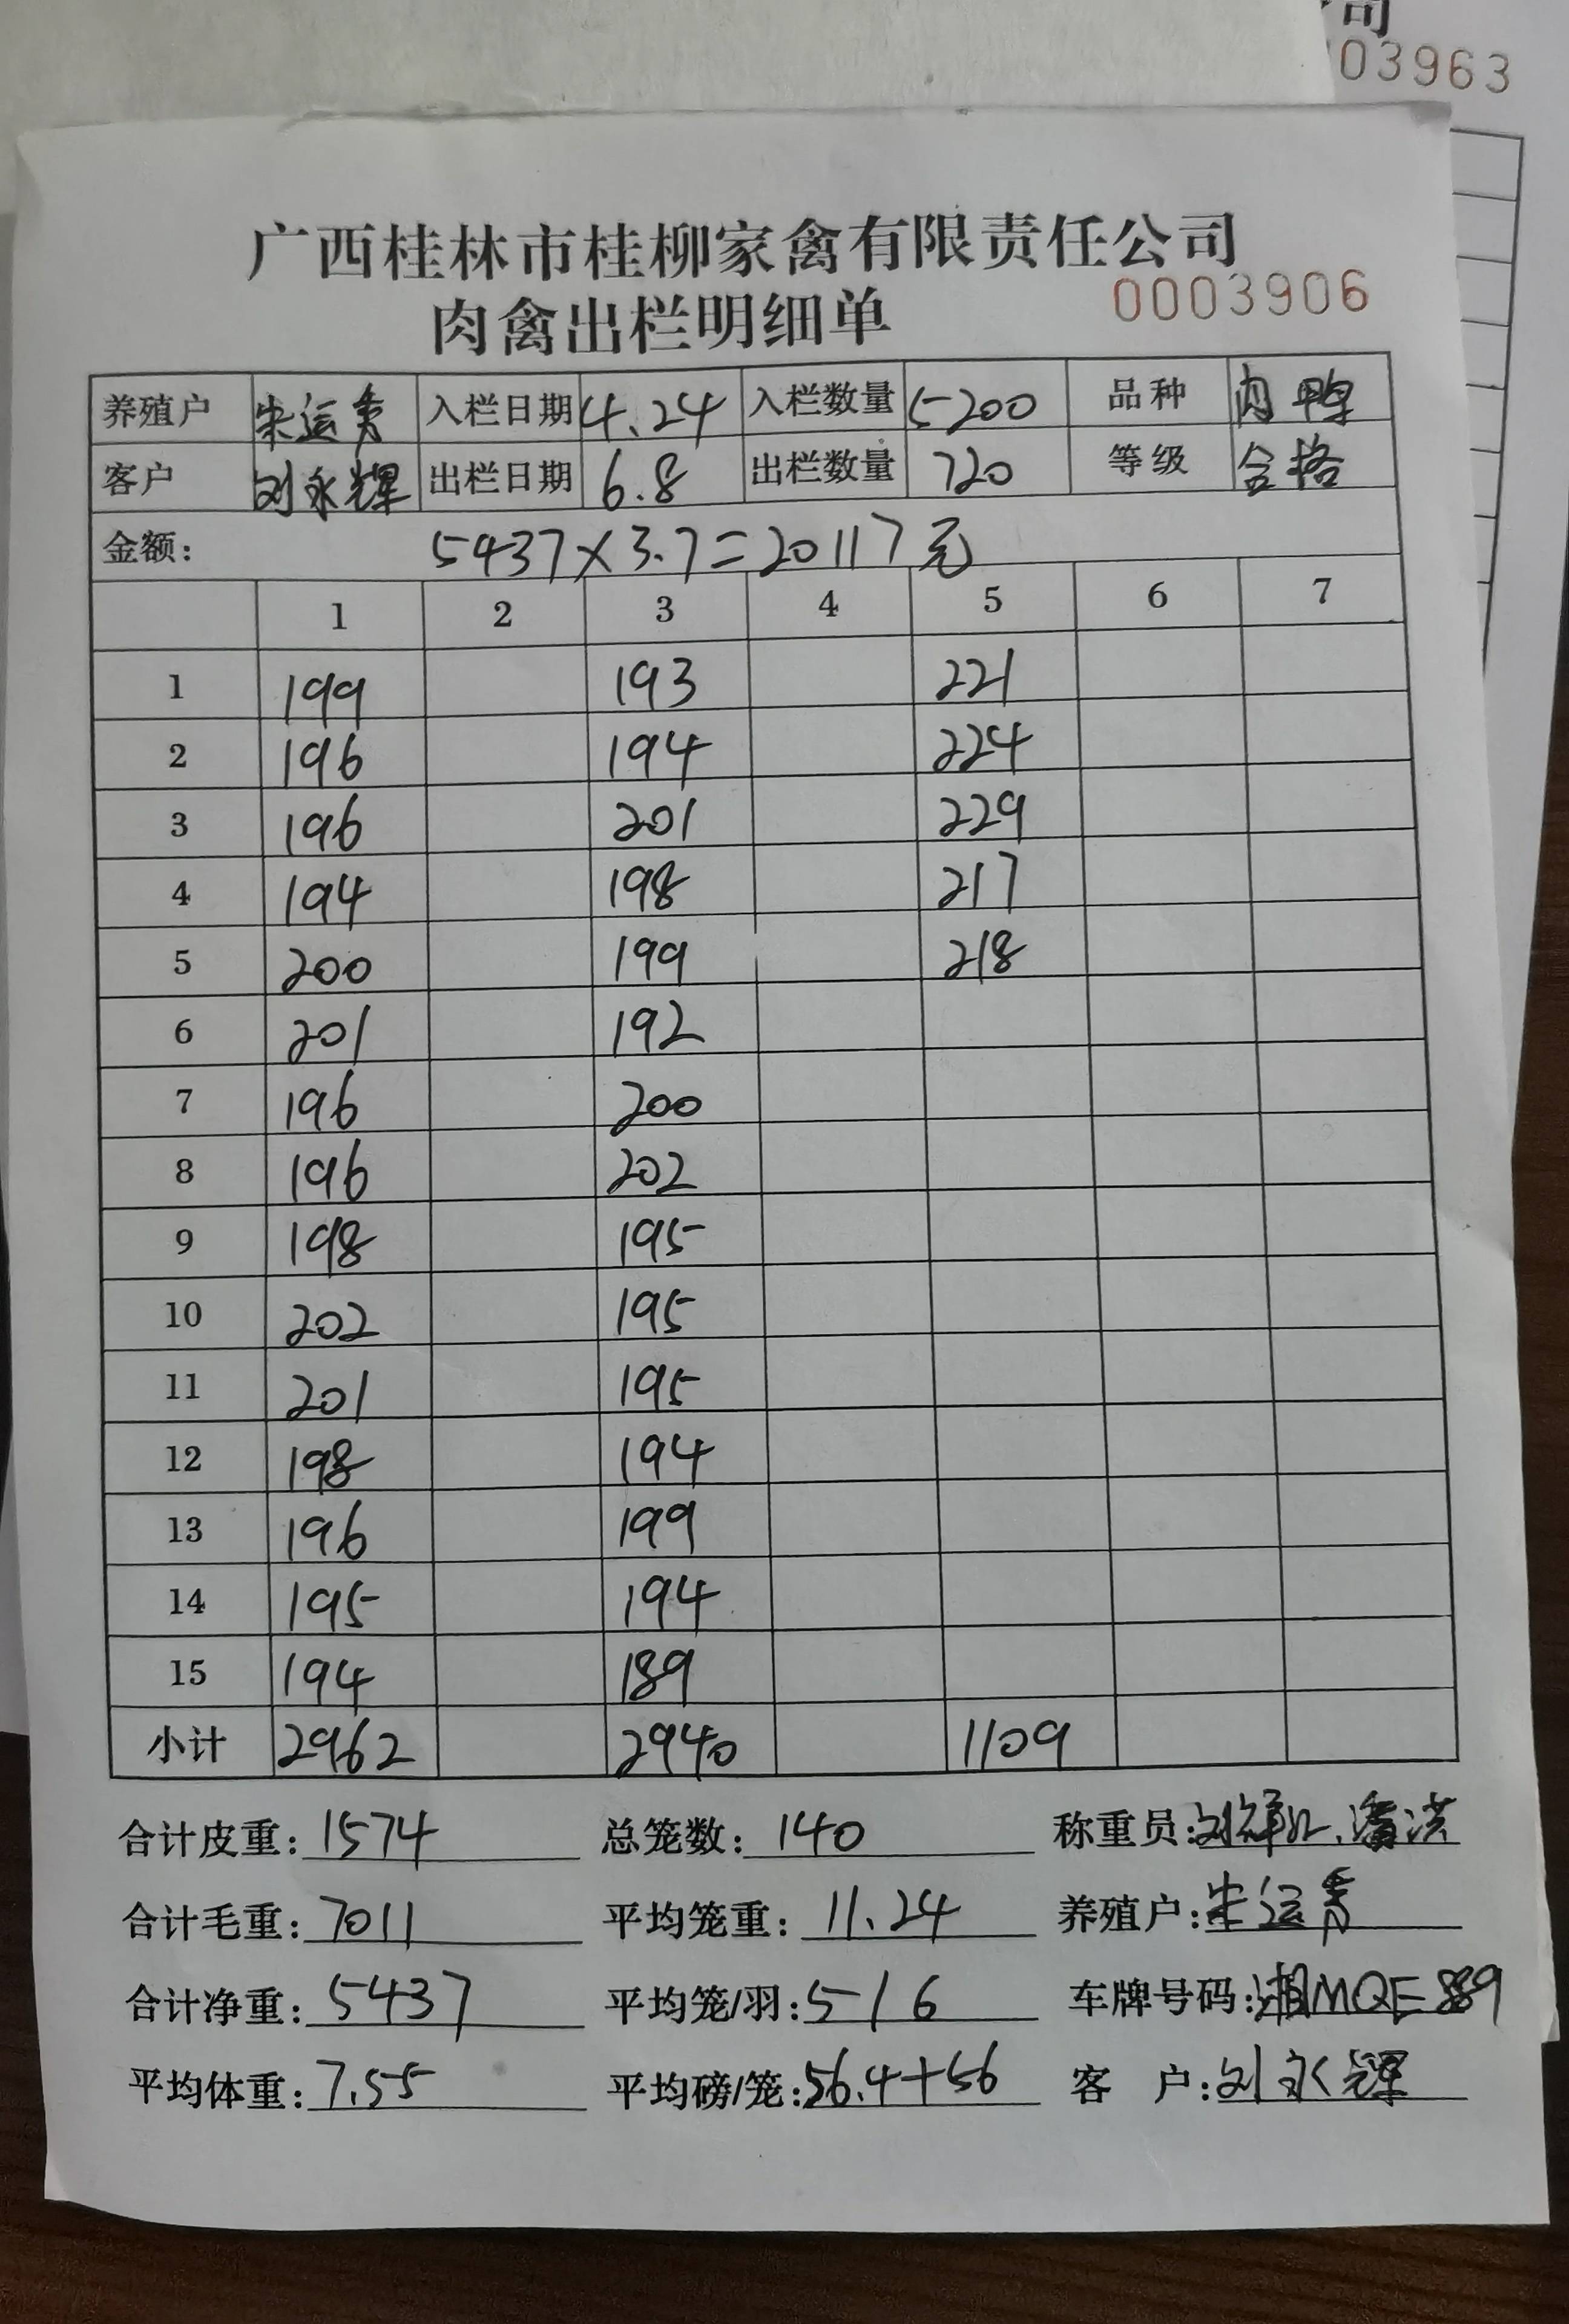 司
03963
广西桂林市桂柳家禽有限责任公司
肉禽出栏明细单 0003906
养殖户 朱运秀 入栏日期 4.24 入栏数量 5200 品种 肉鸭
客户 刘永辉 出栏日期 6.8 出栏数量 720 等级 合格
金额: 5437×3.7=20117元
1 2 3 4 5 6 7
1 199 193 221
2 196 194 224
3 196 201 229
4 194 198 217
5 200 199 218
6 201 192
7 196 200
8 196 202
9 198 195
10 202 195
11 201 195
12 198 194
13 196 199
14 195 194
15 194 189
小计 2962 2940 1109
合计皮重: 1574 总笼数: 140 称重员:
合计毛重: 7011 平均笼重: 11.24 养殖户:
合计净重: 5437 平均笼/羽: 5/6 车牌号码: 湘MQE889
平均体重: 7.55 平均磅/笼: 56.4+56 客 户: 刘永辉